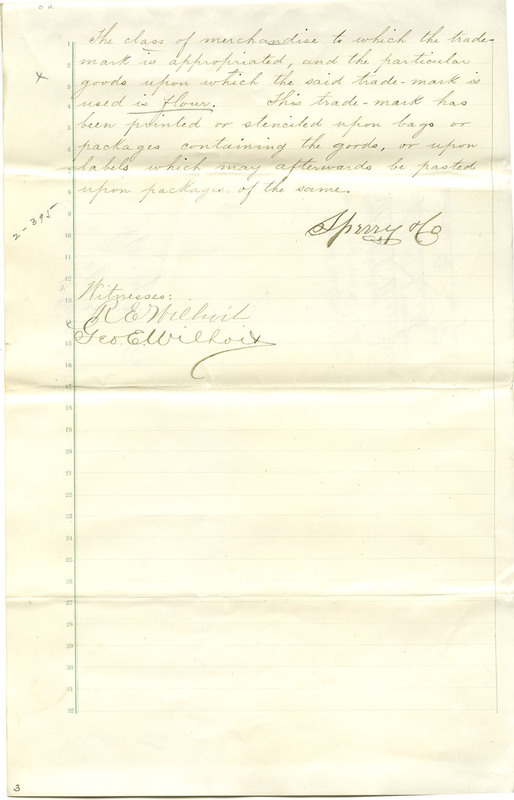 The class of merchandise to which the trade-
mark is appropriated, and the particular
goods upon which the said trade-mark is
used is flour. This trade-mark has
been printed or stenciled upon bags or
packages containing the goods, or upon
labels which may afterwards be pasted
upon packages of the same.
2-395
Sperry & Co
Witnesses:
R E Wilhoit
Geo E. Wilhoit
1
2
3
4
5
6
7
8
9
10
11
12
13
15
16
17
18
19
20
21
22
23
24
25
26
27
28
29
30
31
32
3